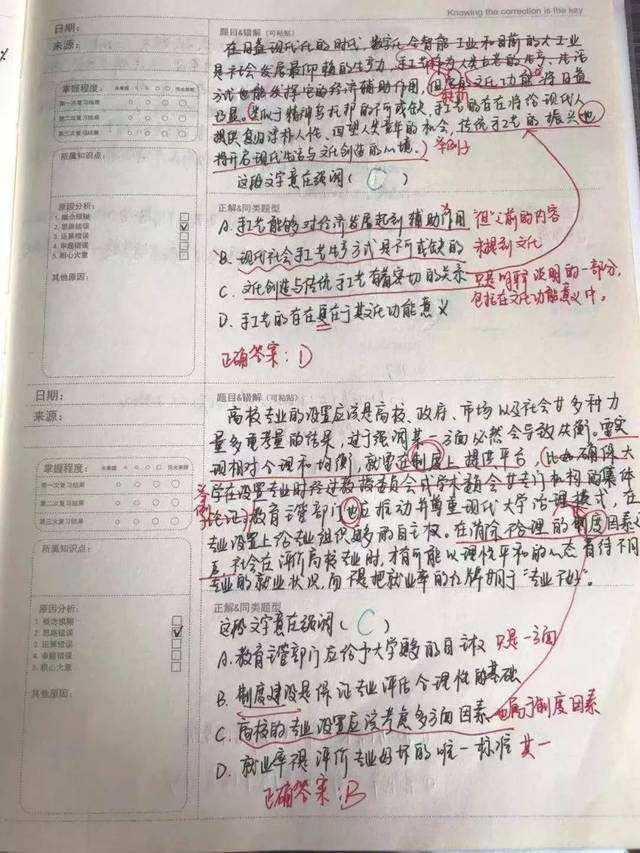 Knowing the correction is the key
日期:
来源:
题目&错解(可粘贴)
在日益现代化的时代,数字化会智能工业和目前的大工业
是社会发展最仰赖的生产力,手工艺作为人类古老的生产、生活
方式也能发挥它的经济辅助作用,但它的文化功能将日益
凸显。类似于精神乌托邦的不可或缺,手工艺的存在将给现代人
提供复归淳朴人性、回望人类童年的机会,传统手工艺的振兴也
将开启现代生活与文化创造的心境。 举例子
这段文字意在强调( C )
掌握程度:
未掌握 完全掌握
第一次复习结果
第二次复习结果
第三次复习结果
所属知识点:
原因分析:
1. 概念模糊
2. 思路错误
3. 运算错误
4. 审题错误
5. 粗心大意
其他原因:
正解&同类题型
A. 手工艺能够对经济发展起到辅助作用 但之前的内容
B. 现代社会手工艺生产方式是不可或缺的 未提到文化
C. 文化创造与传统手工艺有着密切的关系 只是解释说明的一部分,
包括在文化功能意义中。
D. 手工艺的存在意在于其文化功能意义
正确答案:D
日期:
来源:
题目&错解(可粘贴)
高校专业的设置应该是高校、政府、市场以及社会等多种力
量多重考量的结果,过于强调某一方面必然会导致失衡。需实
现相对合理和均衡,就需在制度上提供平台,比如确保大
学在设置专业时经过教授委员会或学术委员会等专门机构的集体
论证,教育主管部门也应推动并尊重现代大学治理模式,在
专业设置上给专业组织够的自主权。在消除不合理的制度因素之
后,社会在评价高校专业时,才有可能以理性平和的心态看待不同
专业的就业状况,而不是把就业率的大牌用于“专业不好”。
举例
掌握程度:
未掌握 完全掌握
第一次复习结果
第二次复习结果
第三次复习结果
所属知识点:
原因分析:
1. 概念模糊
2. 思路错误
3. 运算错误
4. 审题错误
5. 粗心大意
其他原因:
正解&同类题型
这段文字意在强调( C )
A. 教育主管部门应给予大学够的自主权 只是一方面
B. 制度建设是保证专业评估合理性的基础
C. 高校的专业设置应该考虑多方面因素 也属于制度因素
D. 就业率视评价专业好坏的唯一标准 其一
正确答案:B